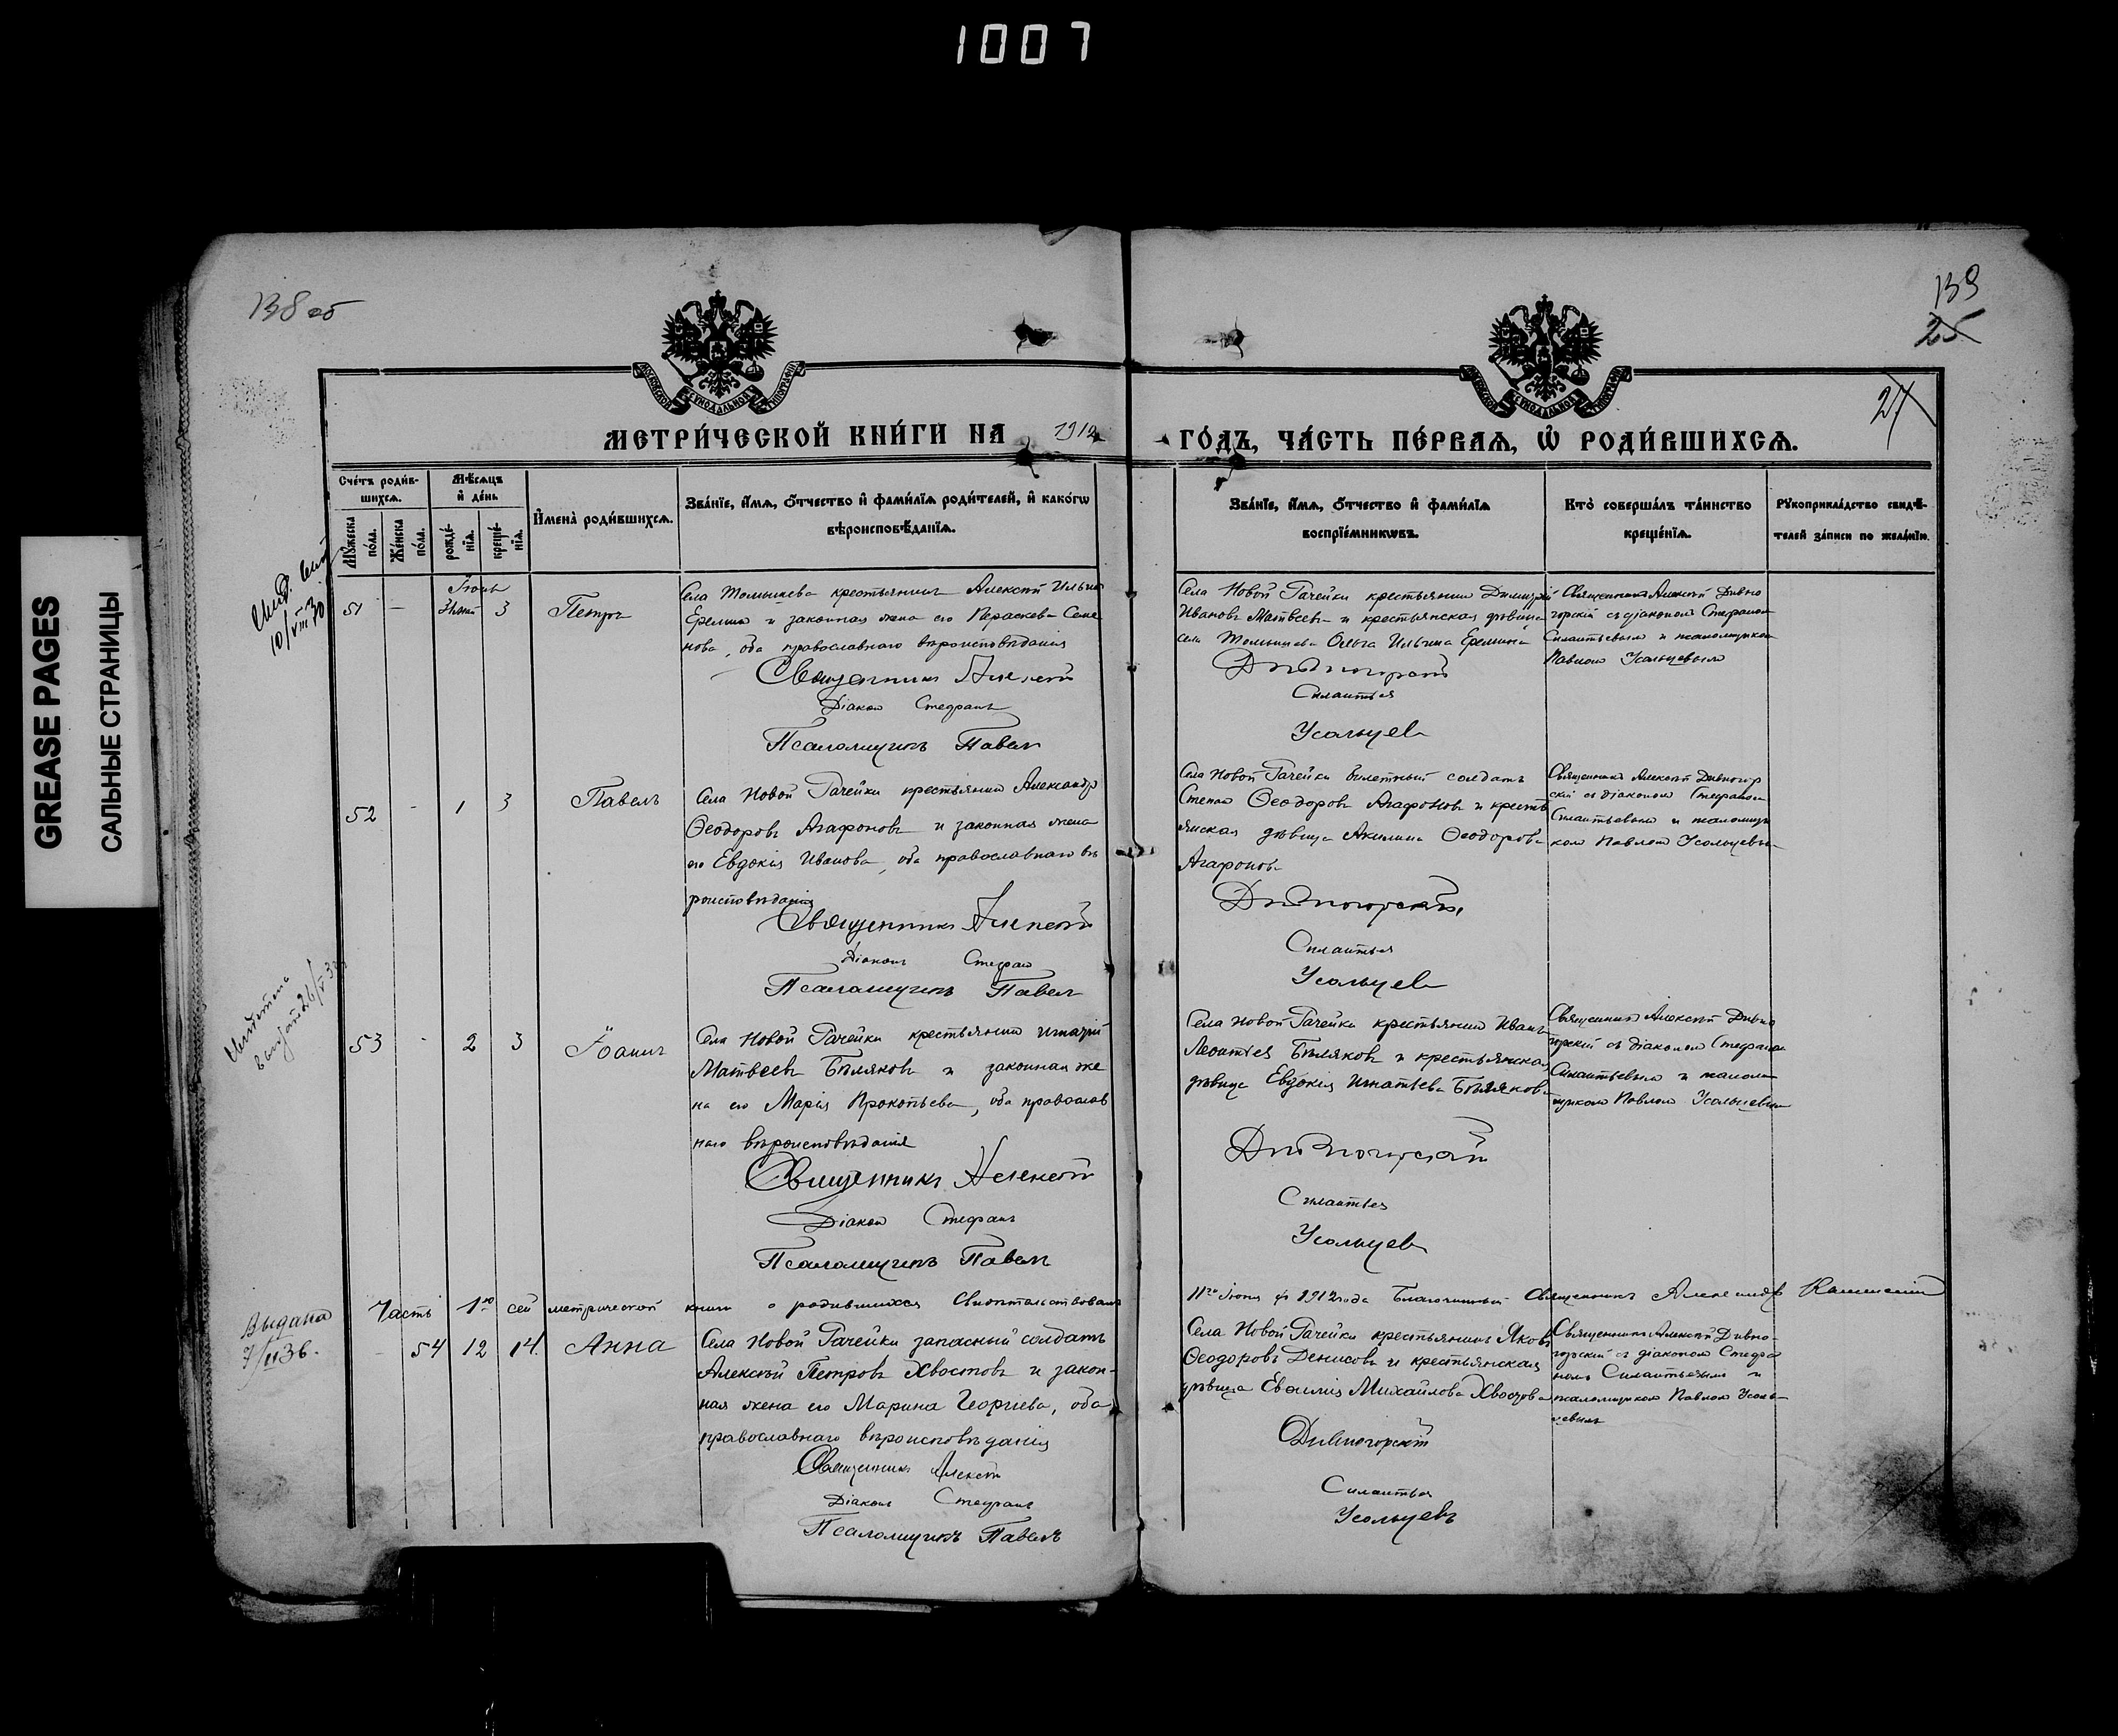 1007
GREASE PAGES
САЛЬНЫЕ СТРАНИЦЫ
138 об
139
25
27
МОСКОВСКОЙ СѴНОДАЛЬНОЙ ТИПОГРАФІИ
МОСКОВСКОЙ СѴНОДАЛЬНОЙ ТИПОГРАФІИ
МЕТРИ́ЧЕСКОЙ КНИ́ГИ НА 1912
ГО́ДЪ, ЧА́СТЬ ПЕ́РВАѦ, Ѡ҆ РОДИ́ВШИХСѦ.
Сче́тъ роди́в-
шихсѧ.
Мꙋ́жеска
по́ла.
Же́нска
по́ла.
Мѣ́сѧцъ
и҆ де́нь
рожде́-
нїѧ.
креще́-
нїѧ.
И҆мена̀ роди́вшихсѧ.
Зва́нїе, и҆́мѧ, ѻ҆́тчество и҆ фами́лїѧ роди́телей, и҆ како́гѡ
вѣроисповѣ́данїѧ.
Зва́нїе, и҆́мѧ, ѻ҆́тчество и҆ фами́лїѧ
воспрїе́мникѡвъ.
Кто̀ соверша́лъ та́инство
креще́нїѧ.
Рꙋкоприкла́дство свидѣ́-
телей за́писи по жела́нїю.
10/VIII 30
51 — 3 Петръ
Села Томышева крестьянинъ Алексѣй Ильинъ
Ереминъ и законная жена его Параскева Семе
нова, оба православнаго вѣроисповѣданія
Священникъ Алексѣй
Діаконъ Стефанъ
Псаломщикъ Павелъ
Села Новой Рачейки крестьянинъ Димитрій
Ивановъ Матвеевъ и крестьянская дѣвица
села Томышева Ольга Ильина Еремина
Дивногорскій
Силантьевъ
Усольцевъ
Священникъ Алексѣй Дивно
горскій съ діакономъ Стефаномъ
Силантьевымъ и псаломщикомъ
Павломъ Усольцевымъ
52 - 1 3 Павелъ
Села Новой Рачейки крестьянинъ Александръ
Ѳеодоровъ Агафоновъ и законная жена
его Евдокія Иванова, оба православнаго вѣ
роисповѣданія
Священникъ Алексѣй
Діаконъ Стефанъ
Псаломщикъ Павелъ
Села Новой Рачейки билетный солдатъ
Степанъ Ѳеодоровъ Агафоновъ и кресть
янская дѣвица Акилина Ѳеодорова
Агафонова
Дивногорскій
Силантьевъ
Усольцевъ
Священникъ Алексѣй Дивногор
скій съ діакономъ Стефаномъ
Силантьевымъ и псаломщи
комъ Павломъ Усольцевымъ
53 - 2 3 Іоаннъ
Села Новой Рачейки крестьянинъ Игнатій
Матвеевъ Бѣляковъ и законная же
на его Марія Прокопьева, оба православ
наго вѣроисповѣданія
Священникъ Алексѣй
Діаконъ Стефанъ
Псаломщикъ Павелъ
Села Новой Рачейки крестьянинъ Иванъ
Леонтьевъ Бѣляковъ и крестьянская
дѣвица Евдокія Игнатьева Бѣлякова
Дивногорскій
Силантьевъ
Усольцевъ
Священникъ Алексѣй Дивно
горскій съ діакономъ Стефаномъ
Силантьевымъ и псалом
щикомъ Павломъ Усольцевымъ
Часть 1ю сей метрической книги о родившихся свидѣтельствовалъ
11го Іюня 1912 года Благочинный Священникъ Александръ
Выдана
7/II 36.
54 12 14. Анна
Села Новой Рачейки запасный солдатъ
Алексѣй Петровъ Хвостовъ и закон-
ная жена его Марина Георгіева, оба
православнаго вѣроисповѣданія
Священникъ Алексѣй
Діаконъ Стефанъ
Псаломщикъ Павелъ
Села Новой Рачейки крестьянинъ Яковъ
Ѳеодоровъ Денисовъ и крестьянская
дѣвица Евфимія Михайлова Хвостова
Дивногорскій
Силантьевъ
Усольцевъ
Священникъ Алексѣй Дивно-
горскій съ діакономъ Стефа
номъ Силантьевымъ и
псаломщикомъ Павломъ Усоль-
цевымъ